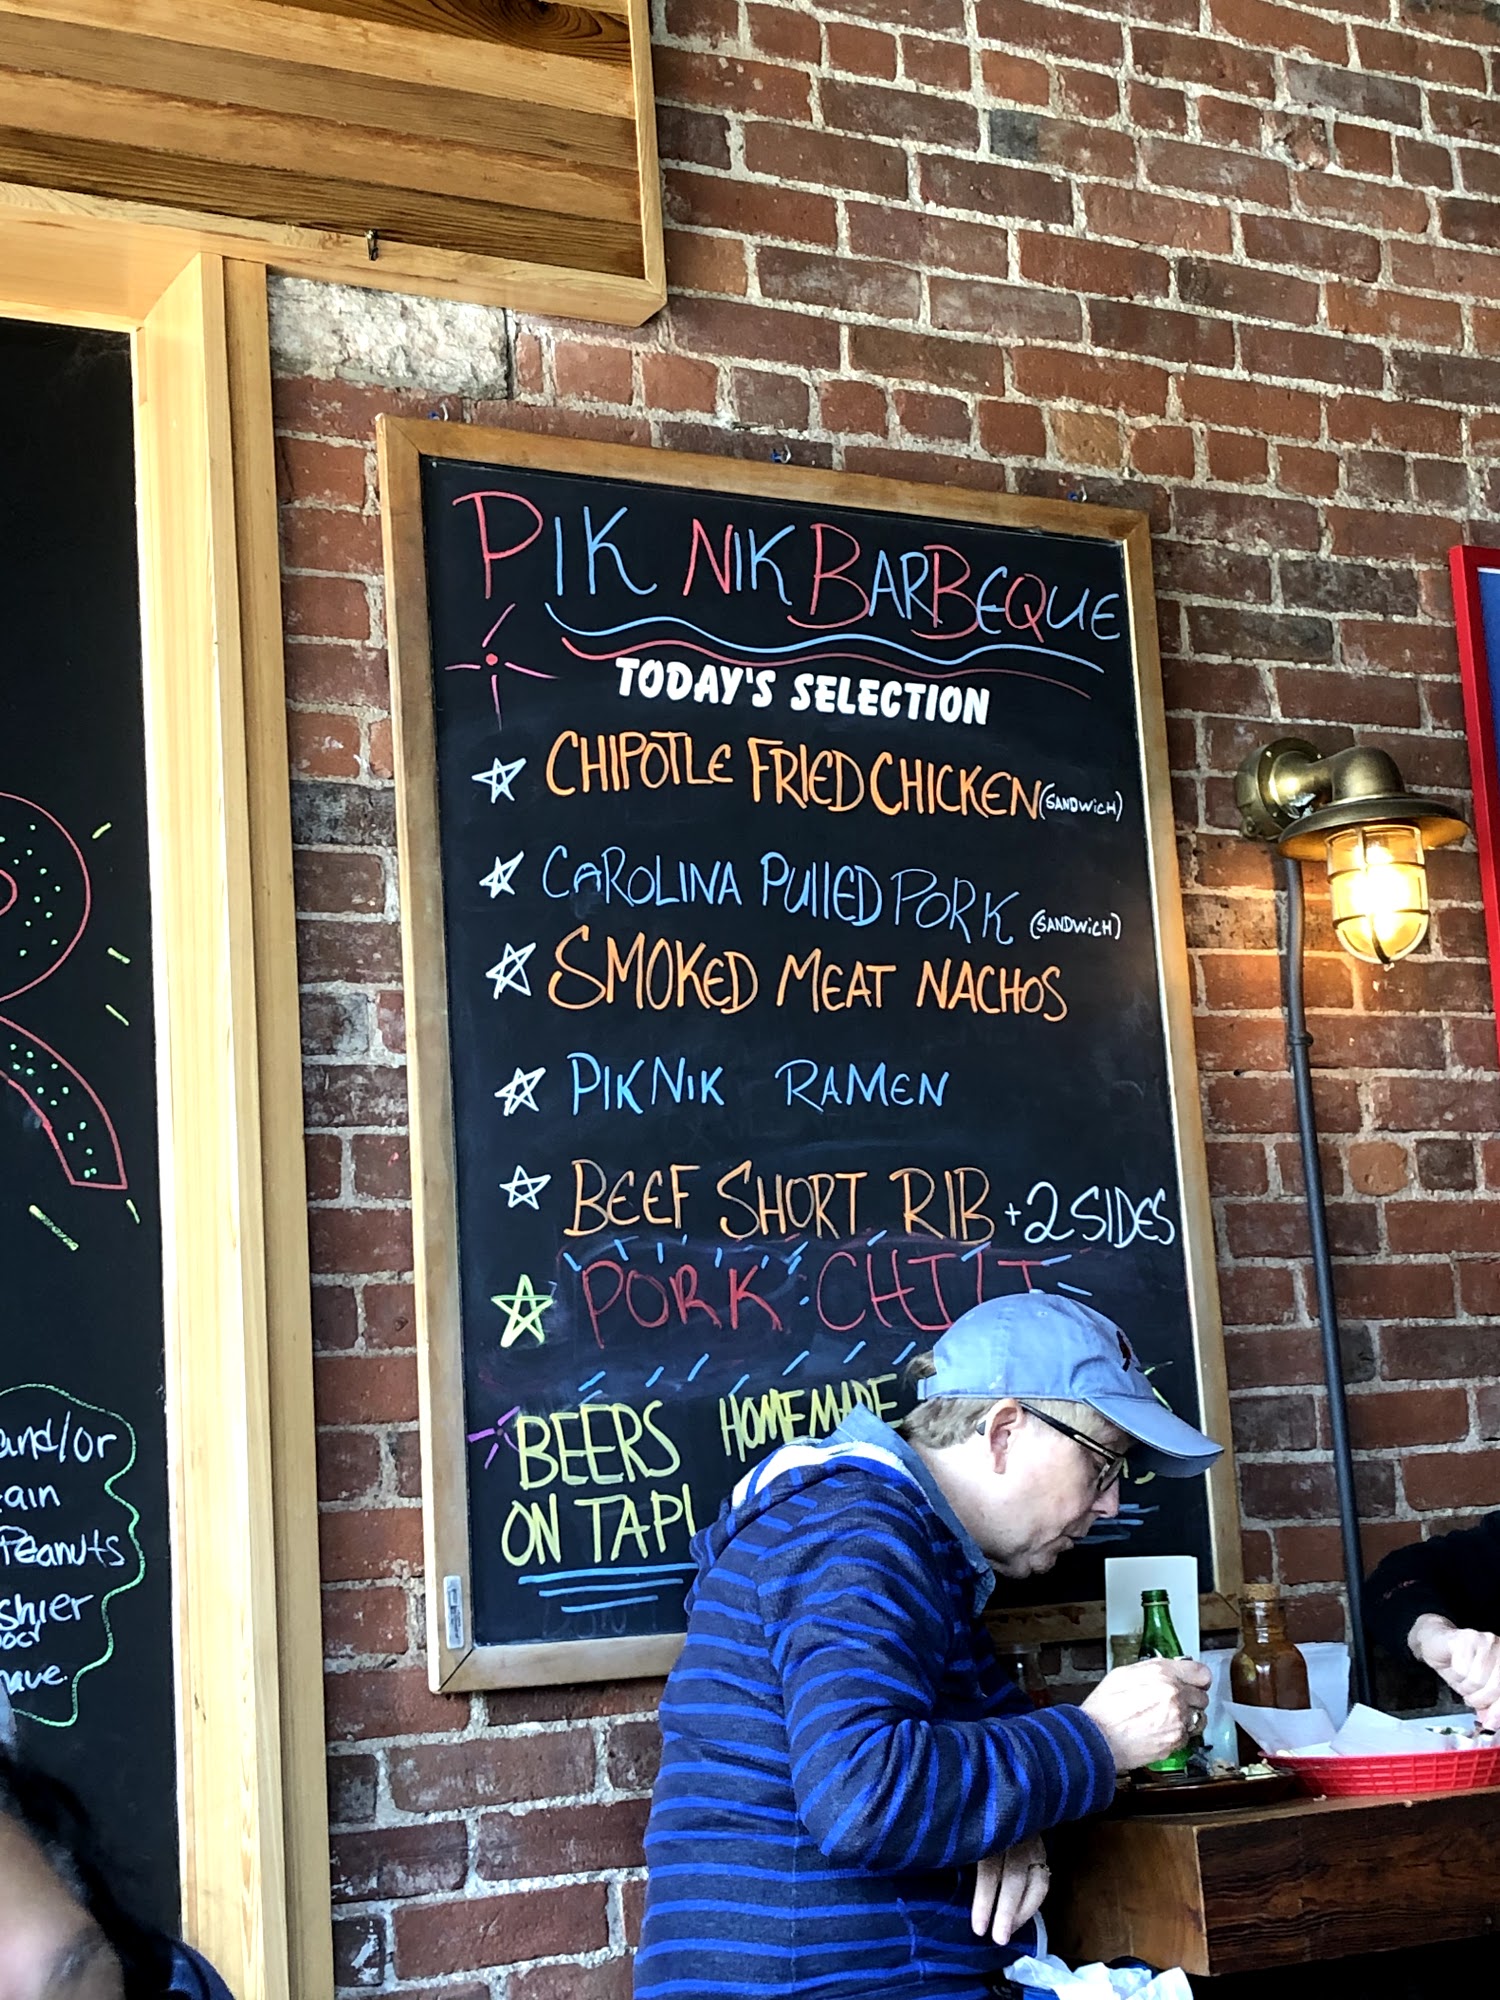 PIK NIK BARBEQUE
TODAY'S SELECTION
CHIPOTLE FRIED CHICKEN (SANDWICH)
CAROLINA PULLED PORK (SANDWICH)
SMOKED MEAT NACHOS
PIKNIK RAMEN
BEEF SHORT RIB + 2 SIDES
PORK CHILI
BEERS
ON TAP!
HOMEMADE
and/or
Peanuts